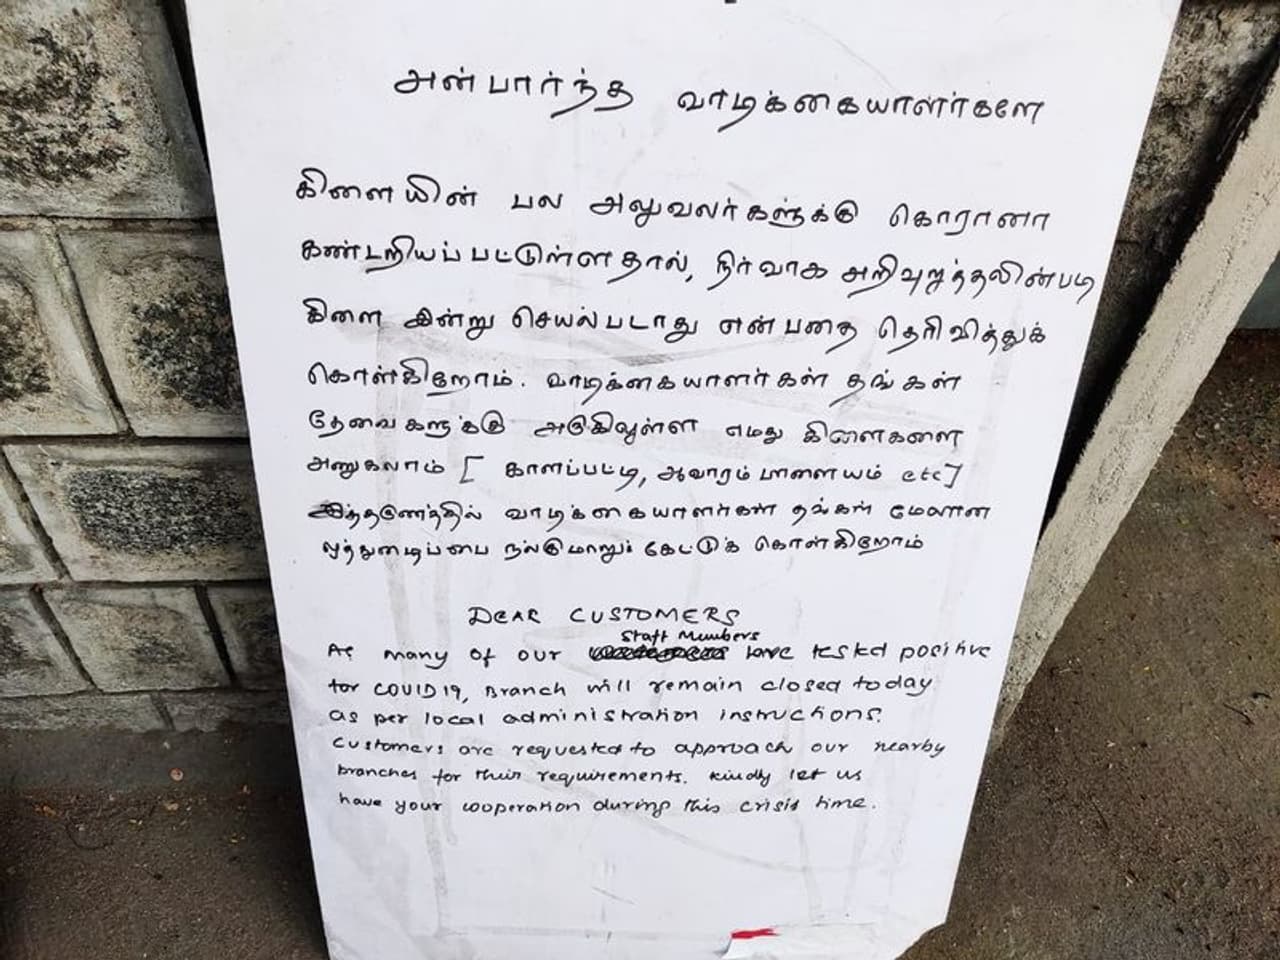 அன்பார்ந்த வாடிக்கையாளர்களே
கிளையின் பல அலுவலர்களுக்கு கொரானா
கண்டறியப்பட்டுள்ளதால், நிர்வாக அறிவுறுத்தலின்படி
கிளை இன்று செயல்படாது என்பதை தெரிவித்துக்
கொள்கிறோம். வாடிக்கையாளர்கள் தங்கள்
தேவைகளுக்கு அருகிலுள்ள எமது கிளைகளை
அணுகலாம் [ காளப்பட்டி, ஆவாரம்பாளையம் etc]
இத்தருணத்தில் வாடிக்கையாளர்கள் தங்கள் மேலான
ஒத்துழைப்பை நல்குமாறு கேட்டுக் கொள்கிறோம்
DEAR CUSTOMERS
Staff Members
As many of our have tested positive
for COVID19, Branch will remain closed today
as per local administration instructions.
Customers are requested to approach our nearby
branches for their requirements. Kindly let us
have your cooperation during this crisis time.